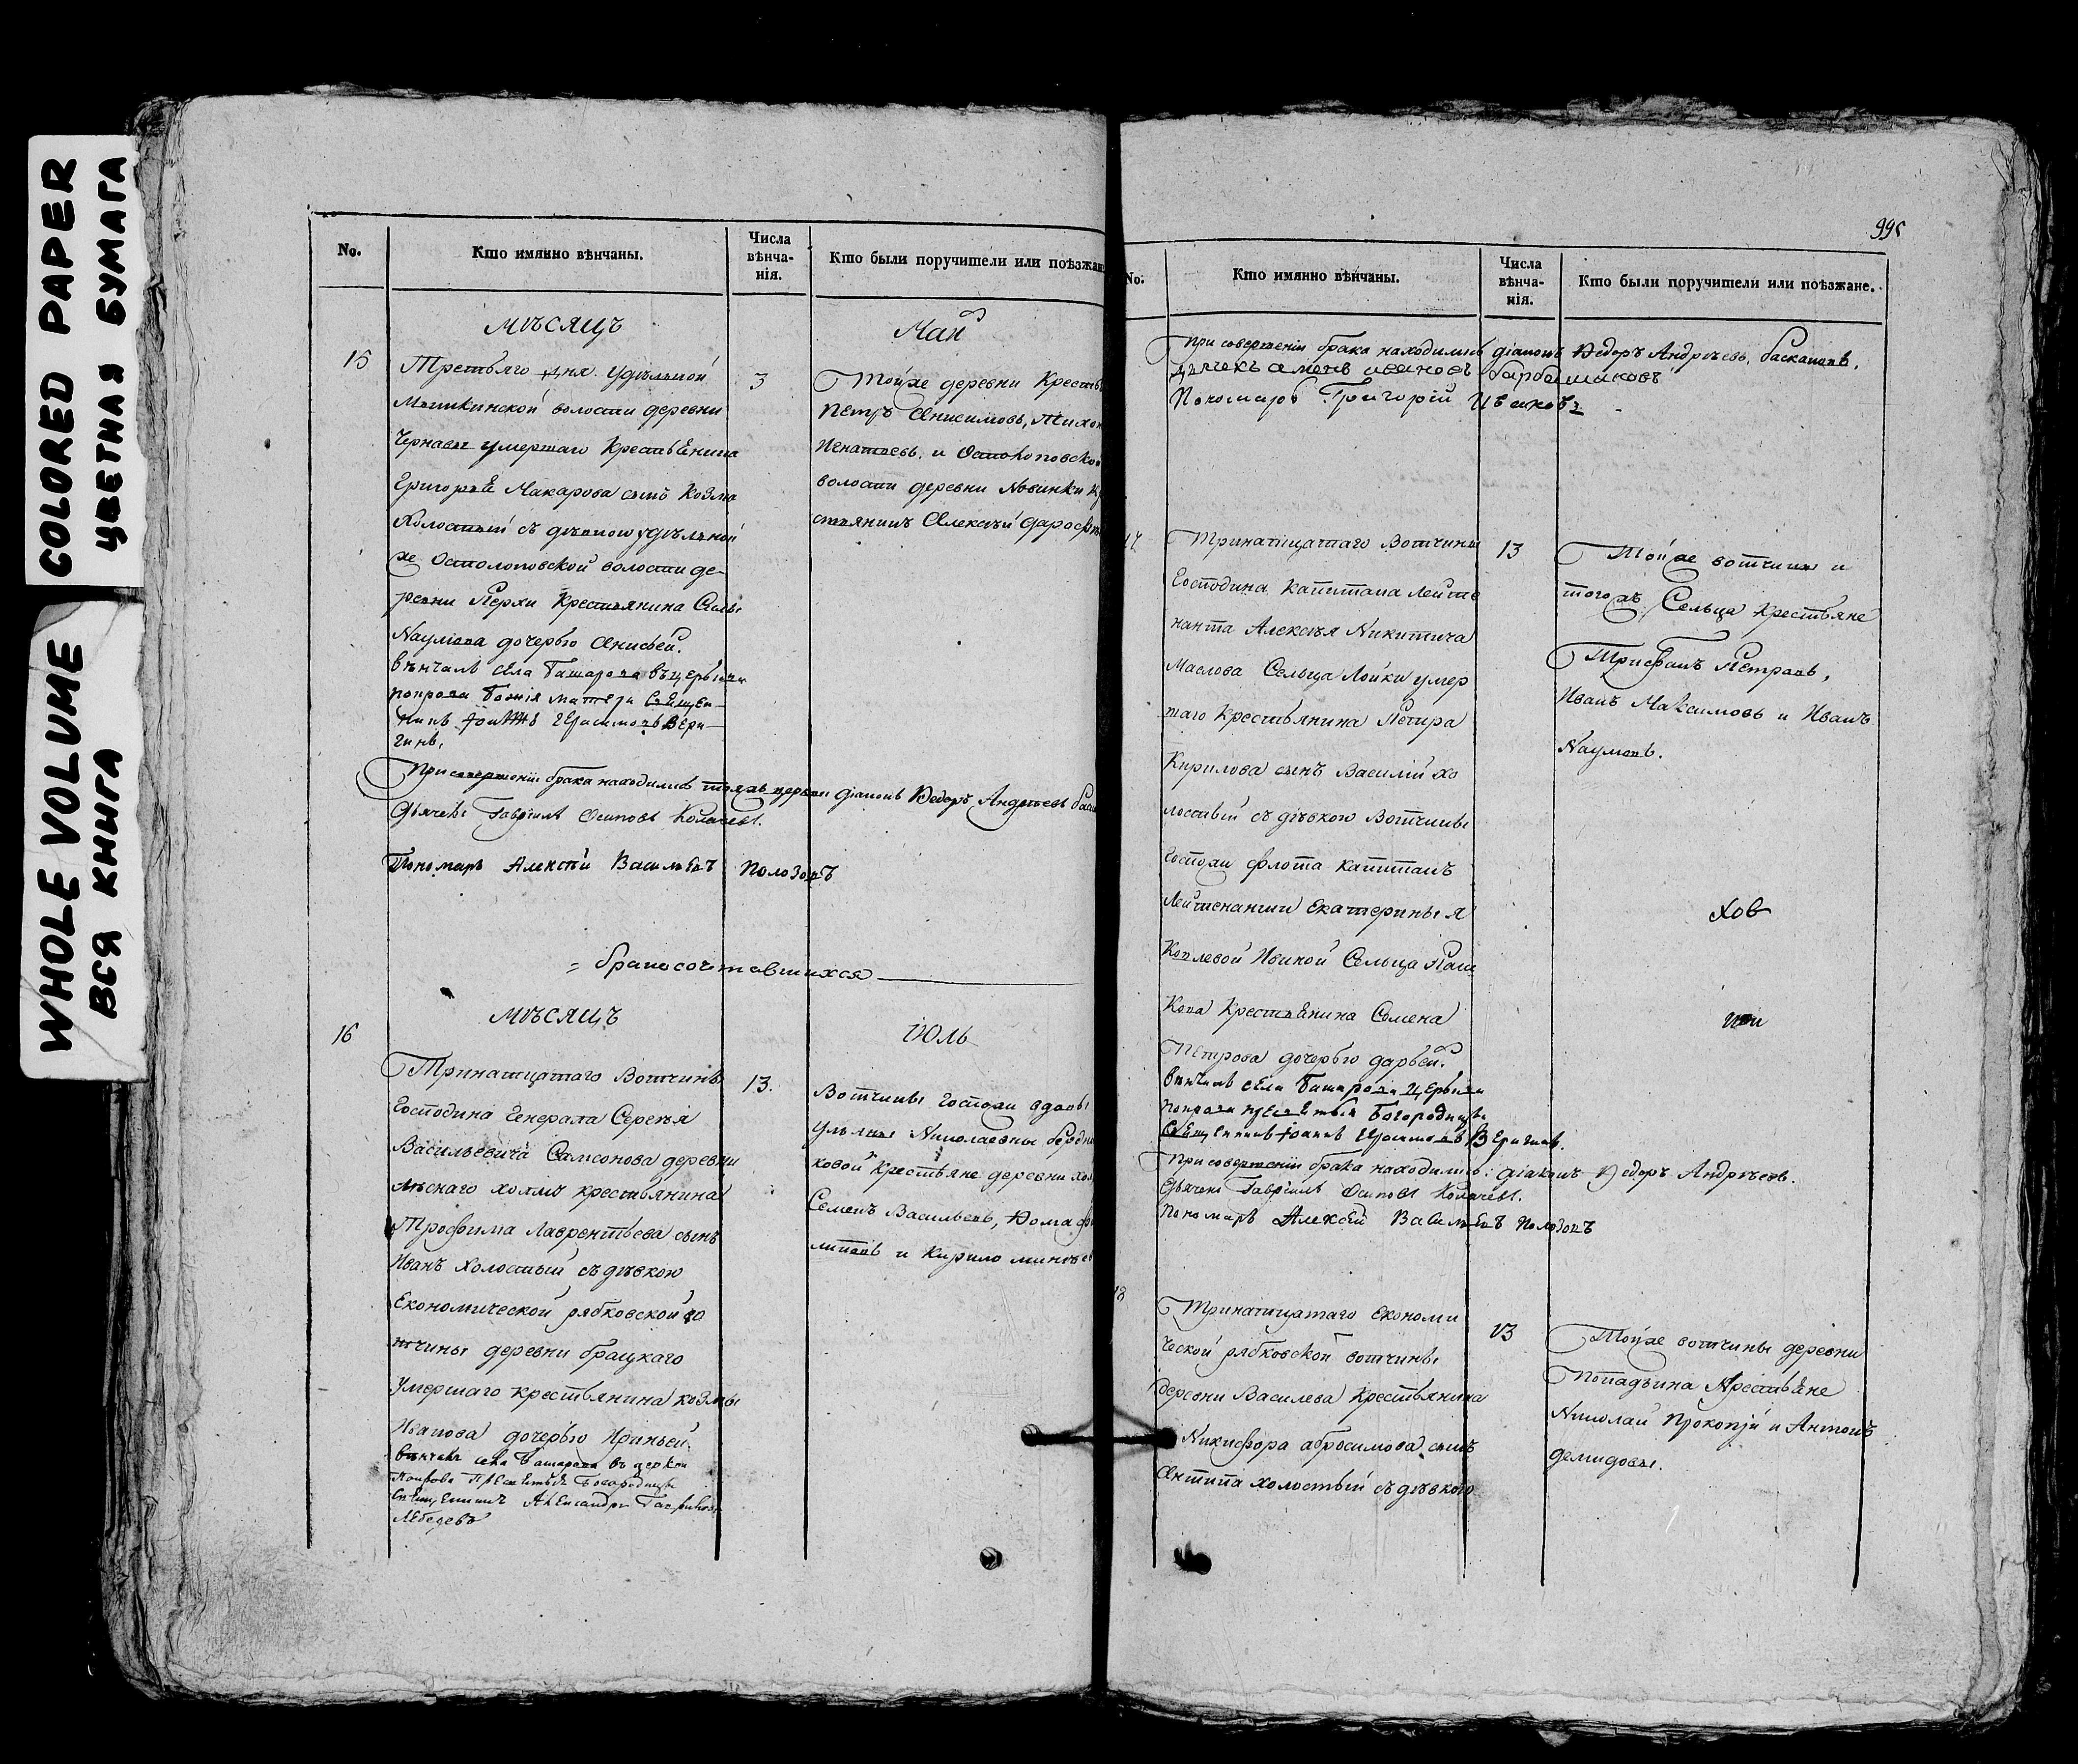 COLORED PAPER
ЦВЕТНАЯ БУМАГА
WHOLE VOLUME
ВСЯ КНИГА
No.
Кто имянно вѣнчаны.
Числа вѣнча-нія.
Кто были поручители или поѣзжан
мѣсяцъ
Маи
15
Третьяго дня Удѣльной
3
волости деревни
умершаго Крестьянина
Макарова сынъ Козма
Холостый съ дѣвкою удѣльной
же Остолоповской волости де-
ревни Крестьянина
Наумова дочерью Анисьей.
вѣнчалъ села Башарова въ церькви
покрова Божія матери Священ-
никъ Іоаннъ Герасимовъ Вери-
гинъ.
Тойже деревни Кресть
Петръ Анисимовъ, Тихон
Игнатьевъ. и Остолоповской
волости деревни Новинки К
стьянинъ Алексѣй
При совершеніи брака находились тояжъ церкви діаконъ Ѳедоръ Андреевъ
Дьячекъ Гавріилъ Осиповъ Колачевъ.
Пономарь Алексѣй Васильевъ Полозовъ
= бракосочетавшихся
мѣсяцъ
Іюль
16
Тринатцатаго Вотчины
13.
Господина Генерала Сергѣя
Васильевича Самсонова деревни
холму крестьянина
Трофима Лаврентьева сынъ
Иванъ Холостый съ дѣвкою
Економической рябковской во
тчины деревни брацкаго
Умершаго крестьянина козмы
Иванова дочерью Ириньей.
Вѣнчалъ села Башарова въ церкви
Покрова Пресвятыя Богородицы
Священникъ Александръ Гавриловъ
Лебедевъ
Вотчины Госпожи вдовы
Ульяны Николаевны
ковой Крестьяне деревни
Семенъ Васильевъ,
и Кирило
995
No.
Кто имянно вѣнчаны.
Числа вѣнча-нія.
Кто были поручители или поѣзжане.
При совершеніи брака находились діаконъ Ѳедоръ Андреевъ, баскаковъ.
дьячекъ семенъ ивановъ барбашиковъ
Пономарь Григорій Ивановъ
17
Тринатцатаго Вотчины
13
Господина Капитана Лейте
нанта Алексѣя Никитича
Маслова Сельца Лойки умер
шаго Крестьянина Петра
Кирилова сынъ Василій хо
лостый съ дѣвкою Вотчины
Госпожи флота капитанъ
Лейтенанши Екатерины Я
Сельца
Кова Крестьянина Семена
Петрова дочерью дарьей.
вѣнчалъ села Башарова церькви
покрова пресвятыя Богородицы
Священникъ Іоаннъ Герасимовъ Веригинъ.
Тойже вотчины и
тогожъ Сельца Крестьяне
Трифонъ Петровъ,
Иванъ Максимовъ и Иванъ
Наумовъ.
ковъ
При совершеніи брака находились: діаконъ Ѳедоръ Андрѣевъ.
Дьячекъ Гавріилъ Осиповъ Колачевъ.
Пономарь Алексѣй Васильевъ Полозовъ
18
Тринатцатаго Економи
13
ческой рябковской вотчины
деревни Василева Крестьянина
Никифора абросимова сынъ
Антипа холостый съ дѣвкою
Тойже вотчины деревни
Попадьина Крестьяне
Николай Прокопій и Антонъ
демидовы.